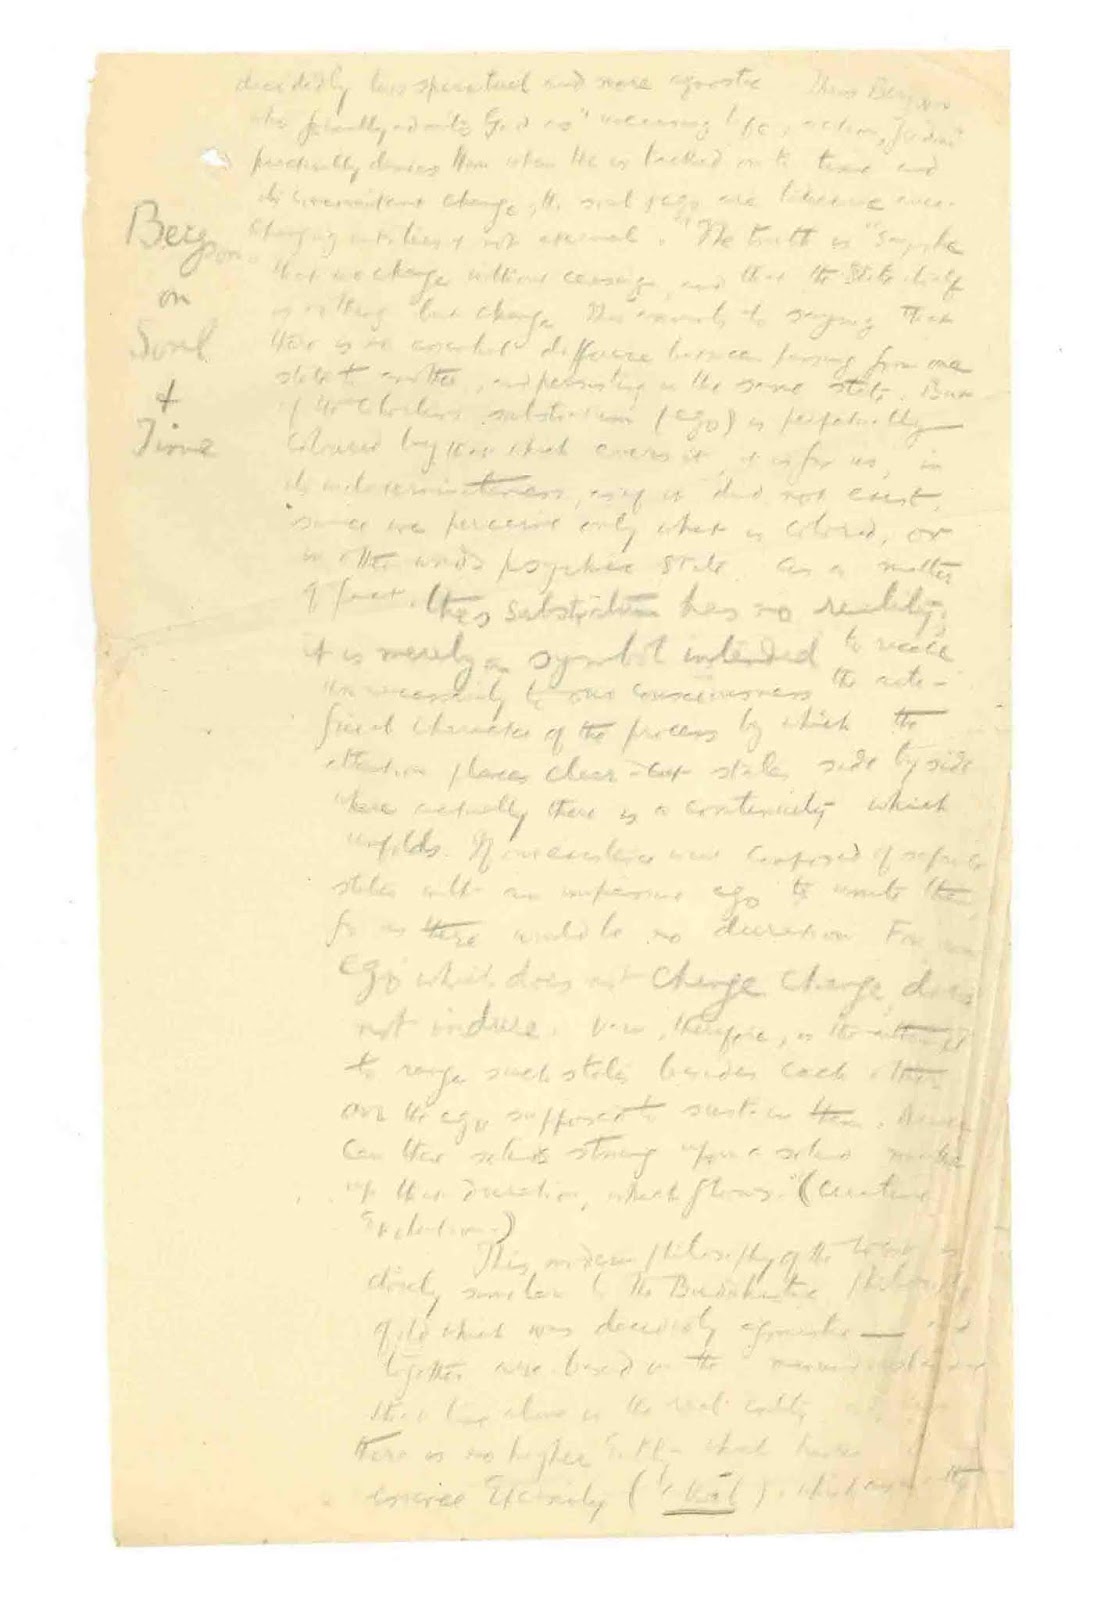 decidedly less spiritual and more agnostic Thus Bergson
who formally admits God as "unceasing life, action, freedom"
practically denies Him when He is tacked on to time and
its concomitant change, the soul, ego are likewise ever-
changing entities & not eternal. "The truth is "
that we change without ceasing, and that the state itself
is nothing but change. This amounts to saying that
there is no essential difference between passing from one
state to another, and persisting in the same state. But
if the colorless substratum (ego) is perpetually
coloured by that which covers it, it is for us, in
its indeterminateness, as if it did not exist,
since we perceive only what is colored, or
in other words psychic state. As a matter
of fact, this substratum has no reality;
it is merely a symbol intended to recall
unceasingly to our consciousness the arti-
ficial character of the process by which the
attention places clear-cut states side by side
where actually there is a continuity which
unfolds. If our existence were composed of separate
states with an impassive ego to unite them,
for us there would be no duration For, an
ego which does not change change, does
not endure. Vain, therefore, is the attempt
to range such states besides each other
on the ego supposed to sustain them. Never
can these solids strung upon a solid make
up that duration, which flows." (Creative
Evolution.)
This modern philosophy of the is
closely similar to the Buddhistic philosophy
of old which was decidedly agnostic — and
together were based on the
that time alone is the real entity
there is no higher Entity which
Eternity ( ).
Bergson
on
Soul
+
Time